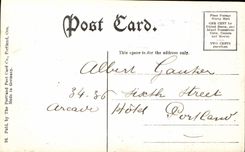 Post Card.
This space is for the address only.
Place Postage
Stamp Here
ONE CENT for
United States, Canada
TWO CENTS
Albert Gauker
34.36 Sixth Street
Arcade Hotel Portland
Pub. by The Portland Post Card Co., Portland, Ore.
Made in Germany.